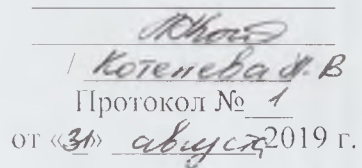 / Котенева Н. В
Протокол № 1
от «31» август 2019 г.